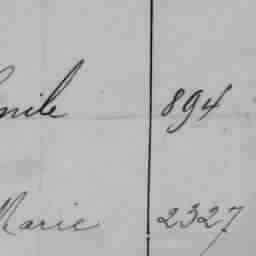 Emile 894
Marie 2327